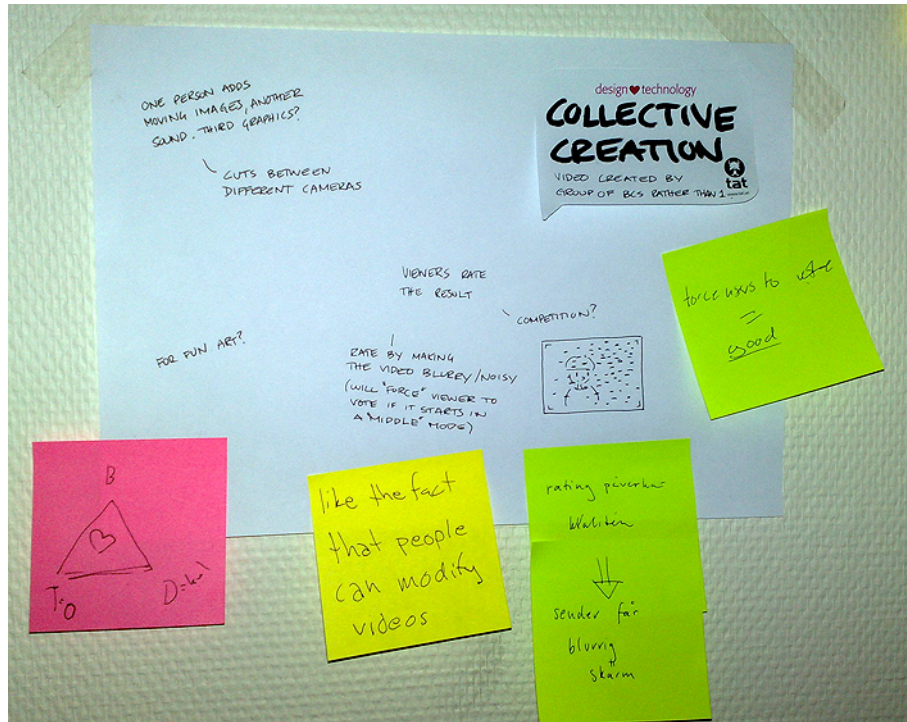 ONE PERSON ADDS
MOVING IMAGES, ANOTHER
SOUND. THIRD GRAPHICS?
CUTS BETWEEN
DIFFERENT CAMERAS
design technology
COLLECTIVE
CREATION
VIDEO CREATED BY
GROUP OF BCS RATHER THAN 1
tat
VIEWERS RATE
THE RESULT
COMPETITION?
FOR FUN ART?
RATE BY MAKING
THE VIDEO BLURRY/NOISY
(WILL "FORCE" VIEWER TO
VOTE IF IT STARTS IN
A "MIDDLE" MODE)
force users to
=
good
B
like the fact
that people
can modify
videos
rating påverkar
kvalitén
sender får
blurrig
skärm